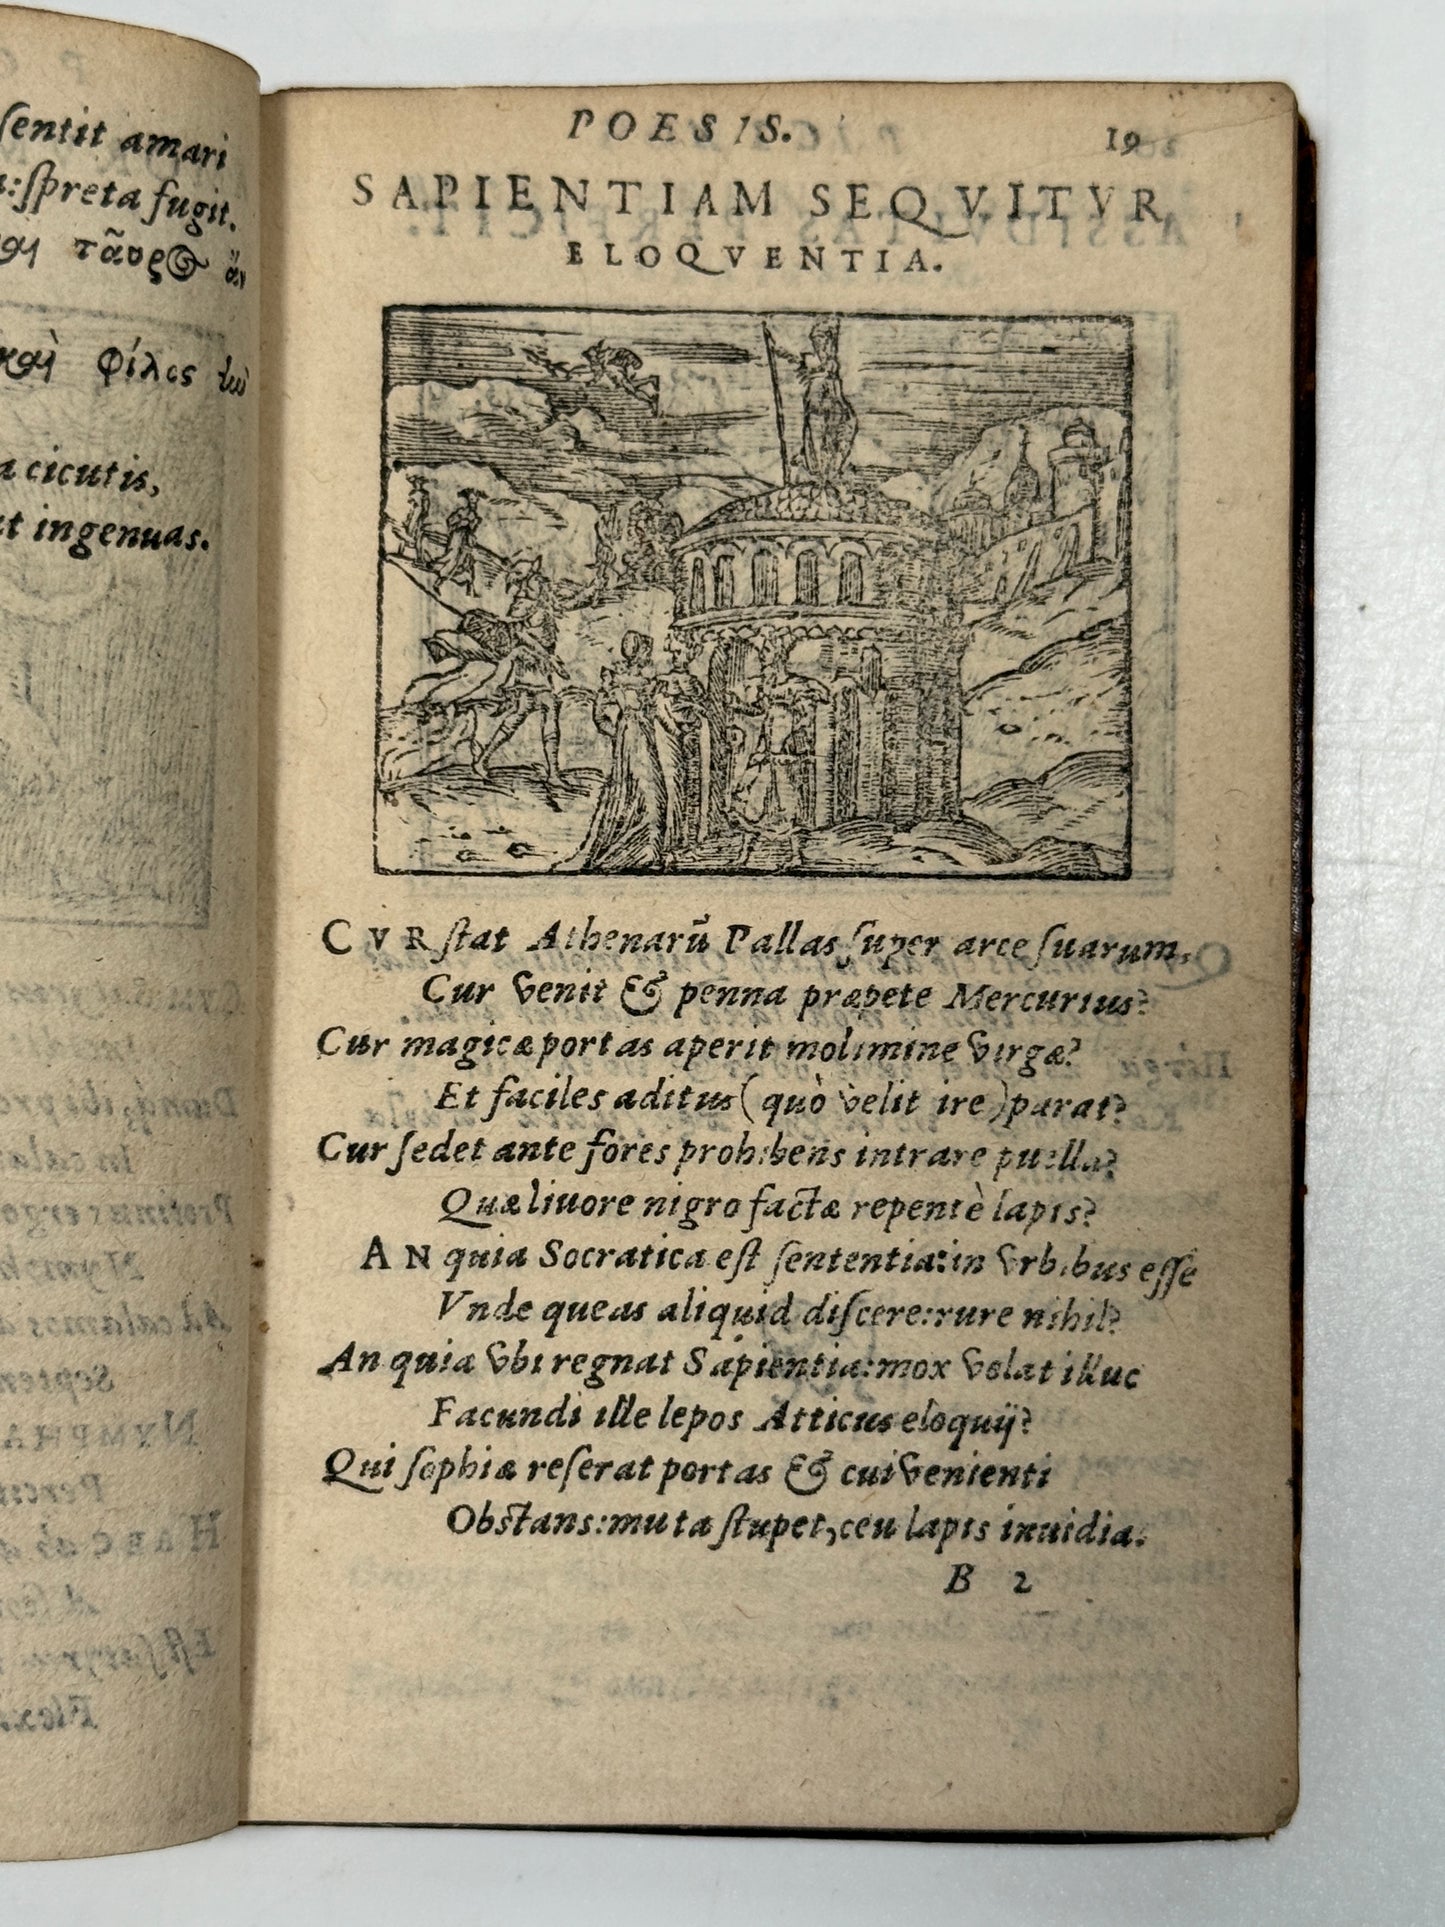 ſentit amari
ſpreta fugit.
φίλος
cicutis,
ingenuas.
POESIS. 19
SAPIENTIAM SEQVITVR
ELOQVENTIA.
CVR ſtat Athenarū Pallas ſuper arce ſuarum,
Cur venit & penna præpete Mercurius?
Cur magicæ portas aperit molimine virgæ?
Et faciles aditus (quò velit ire) parat?
Cur ſedet ante fores prohibens intrare puella?
Quæ liuore nigro factæ repentè lapis?
AN quia Socratica eſt ſententia: in vrbibus eſſe
Vnde queas aliquid diſcere: rure nihil?
An quia vbi regnat Sapientia: mox volat illuc
Facundi ille lepos Atticus eloquij?
Qui ſophiæ reſerat portas & cui venienti
Obſtans: muta ſtupet, ceu lapis inuidia.
B 2